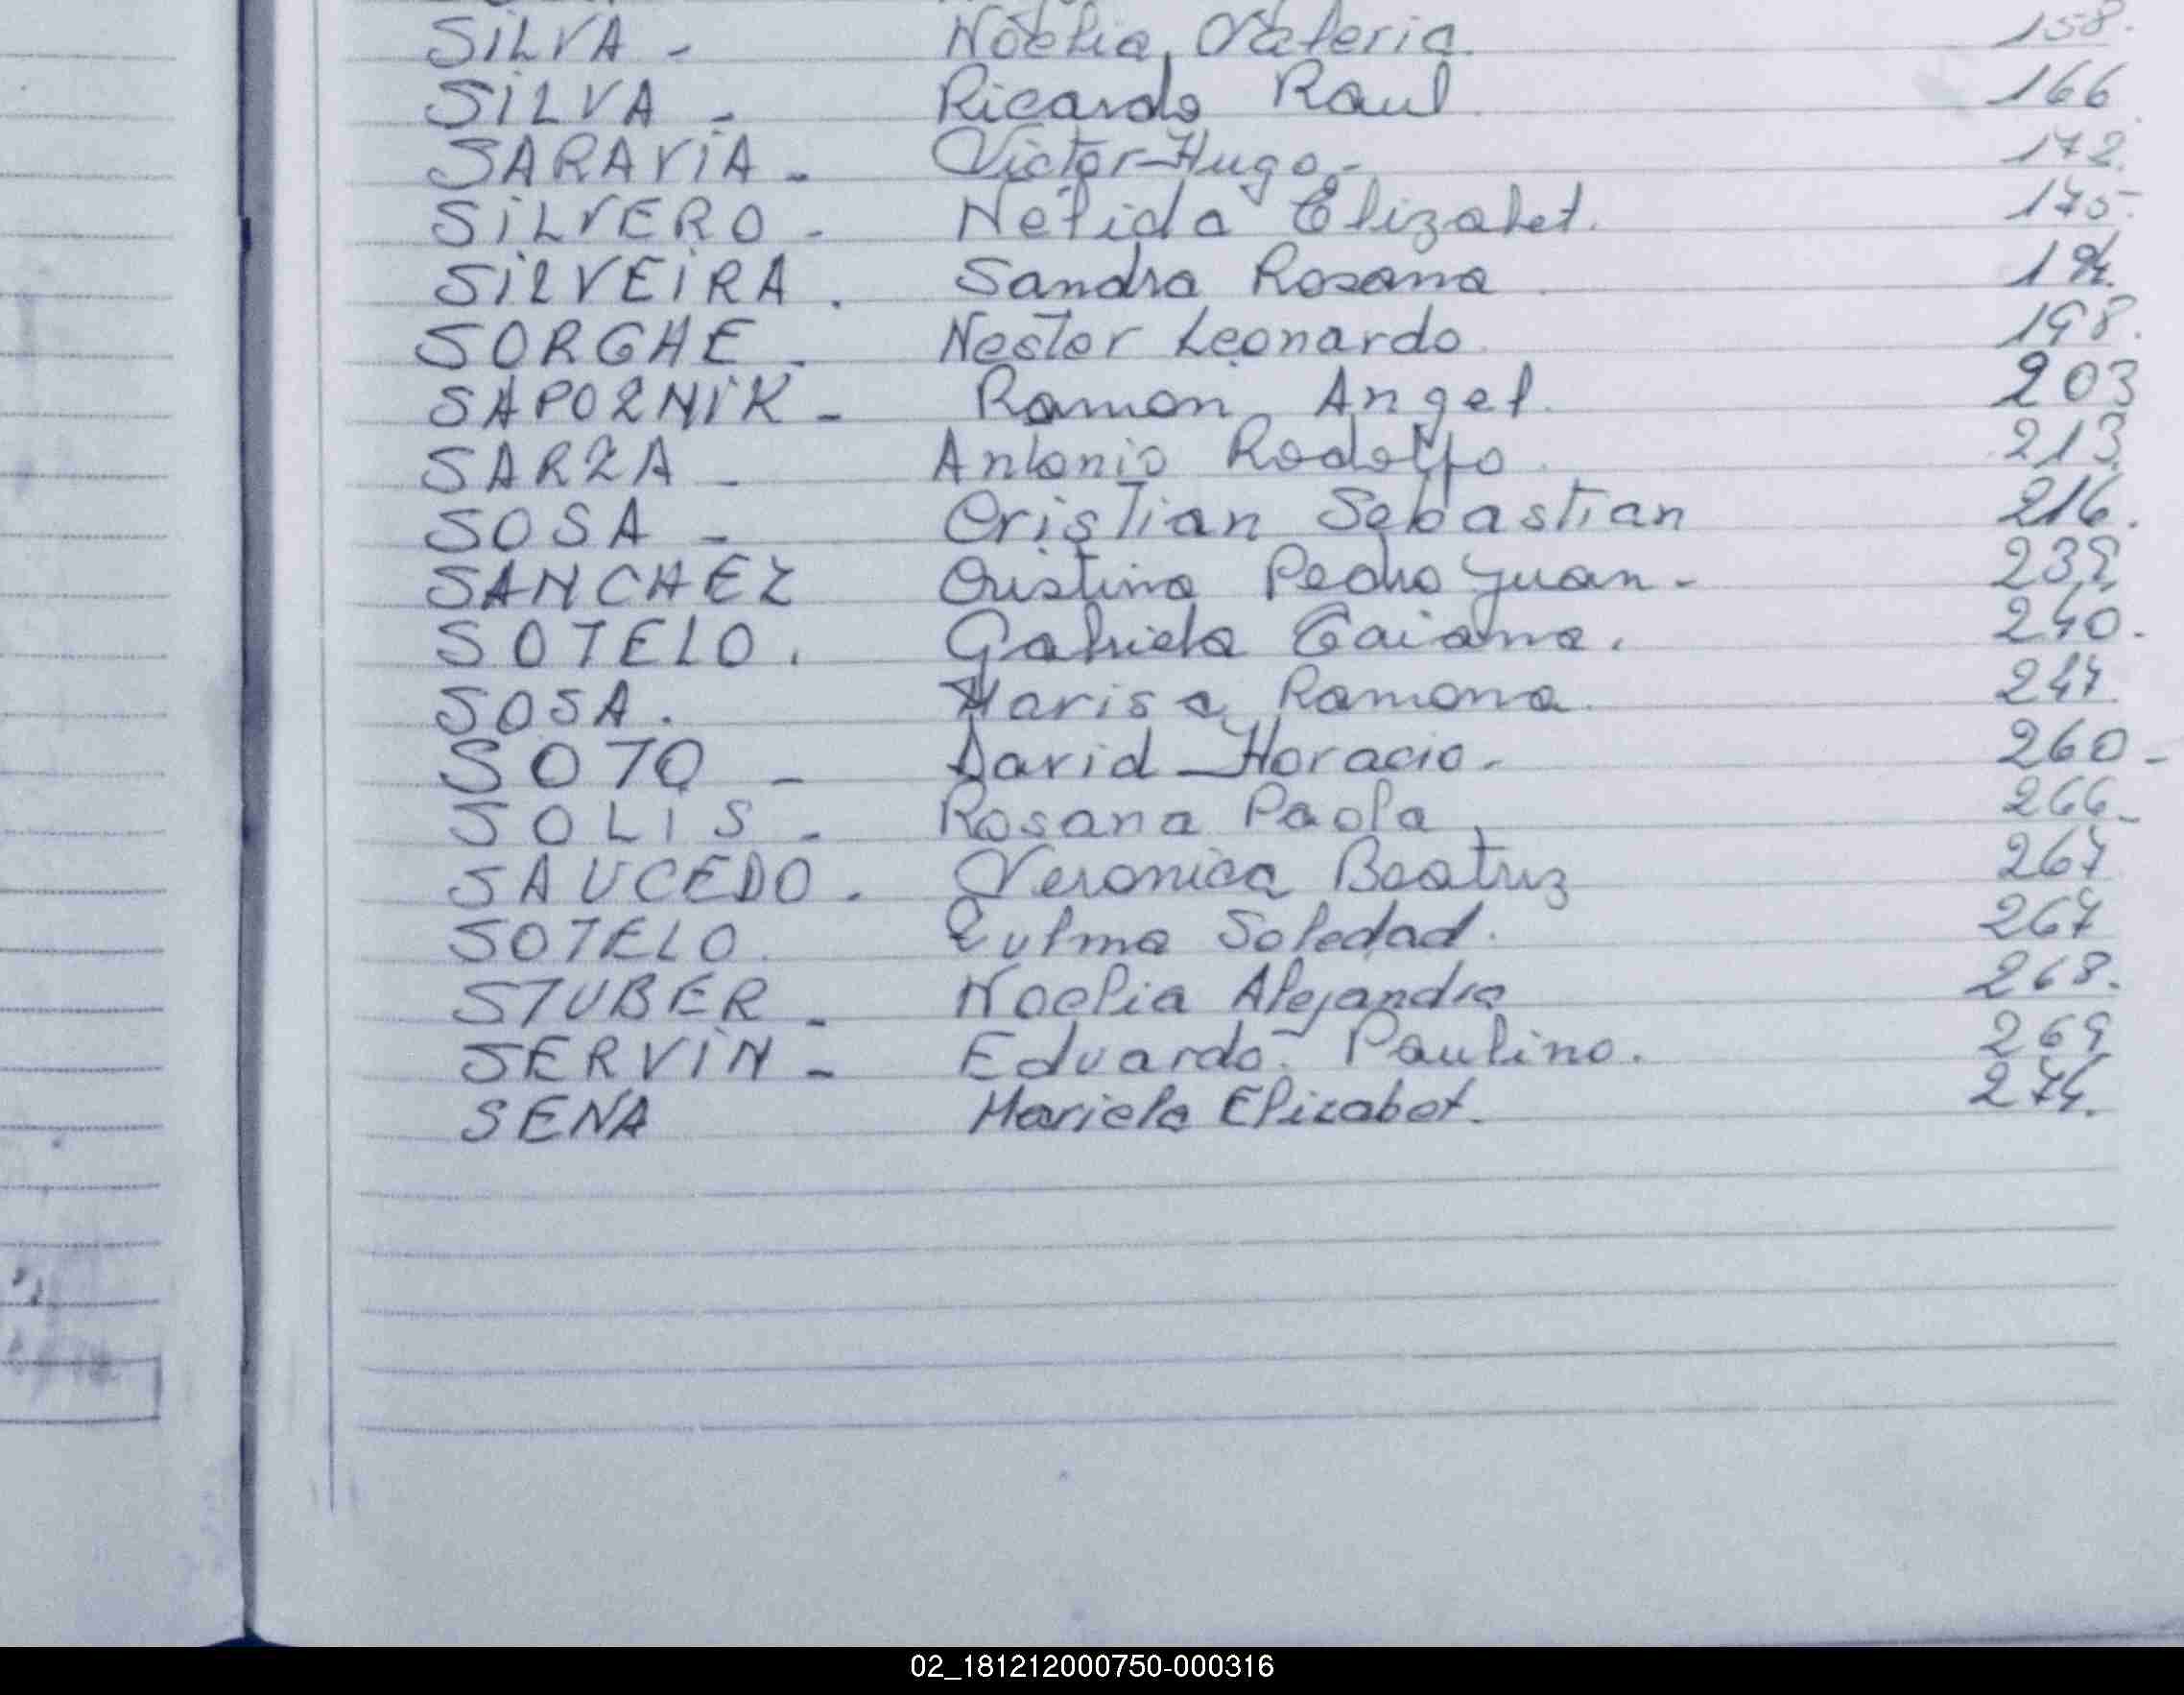 SILVA - Noelia Valeria. 158.
SILVA - Ricardo Raul 166
SARAVIA - Victor Hugo - 172.
SILVERO - Nelida Elizabet. 175-
SILVEIRA . Sandra Rosana
SORGHE . Nestor Leonardo. 198.
SAPOZNIK - Ramon Angel. 203
SARZA - Antonio Rodolfo. 213
SOSA - Cristian Sebastian 216.
SANCHEZ Cristino Pedro Juan -
SOTELO . Gabriela Taiana. 240.
SOSA . Marisa Ramona. 247
SOTO - David Horacio. 260-
SOLIS - Rosana Paola 266-
SAUCEDO . Veronica Beatriz 267
SOTELO. Zulma Soledad. 267
STUBER - Noelia Alejandra 268.
SERVIN - Eduardo Paulino. 269
SENA Mariela Elizabet. 274.
02_181212000750-000316